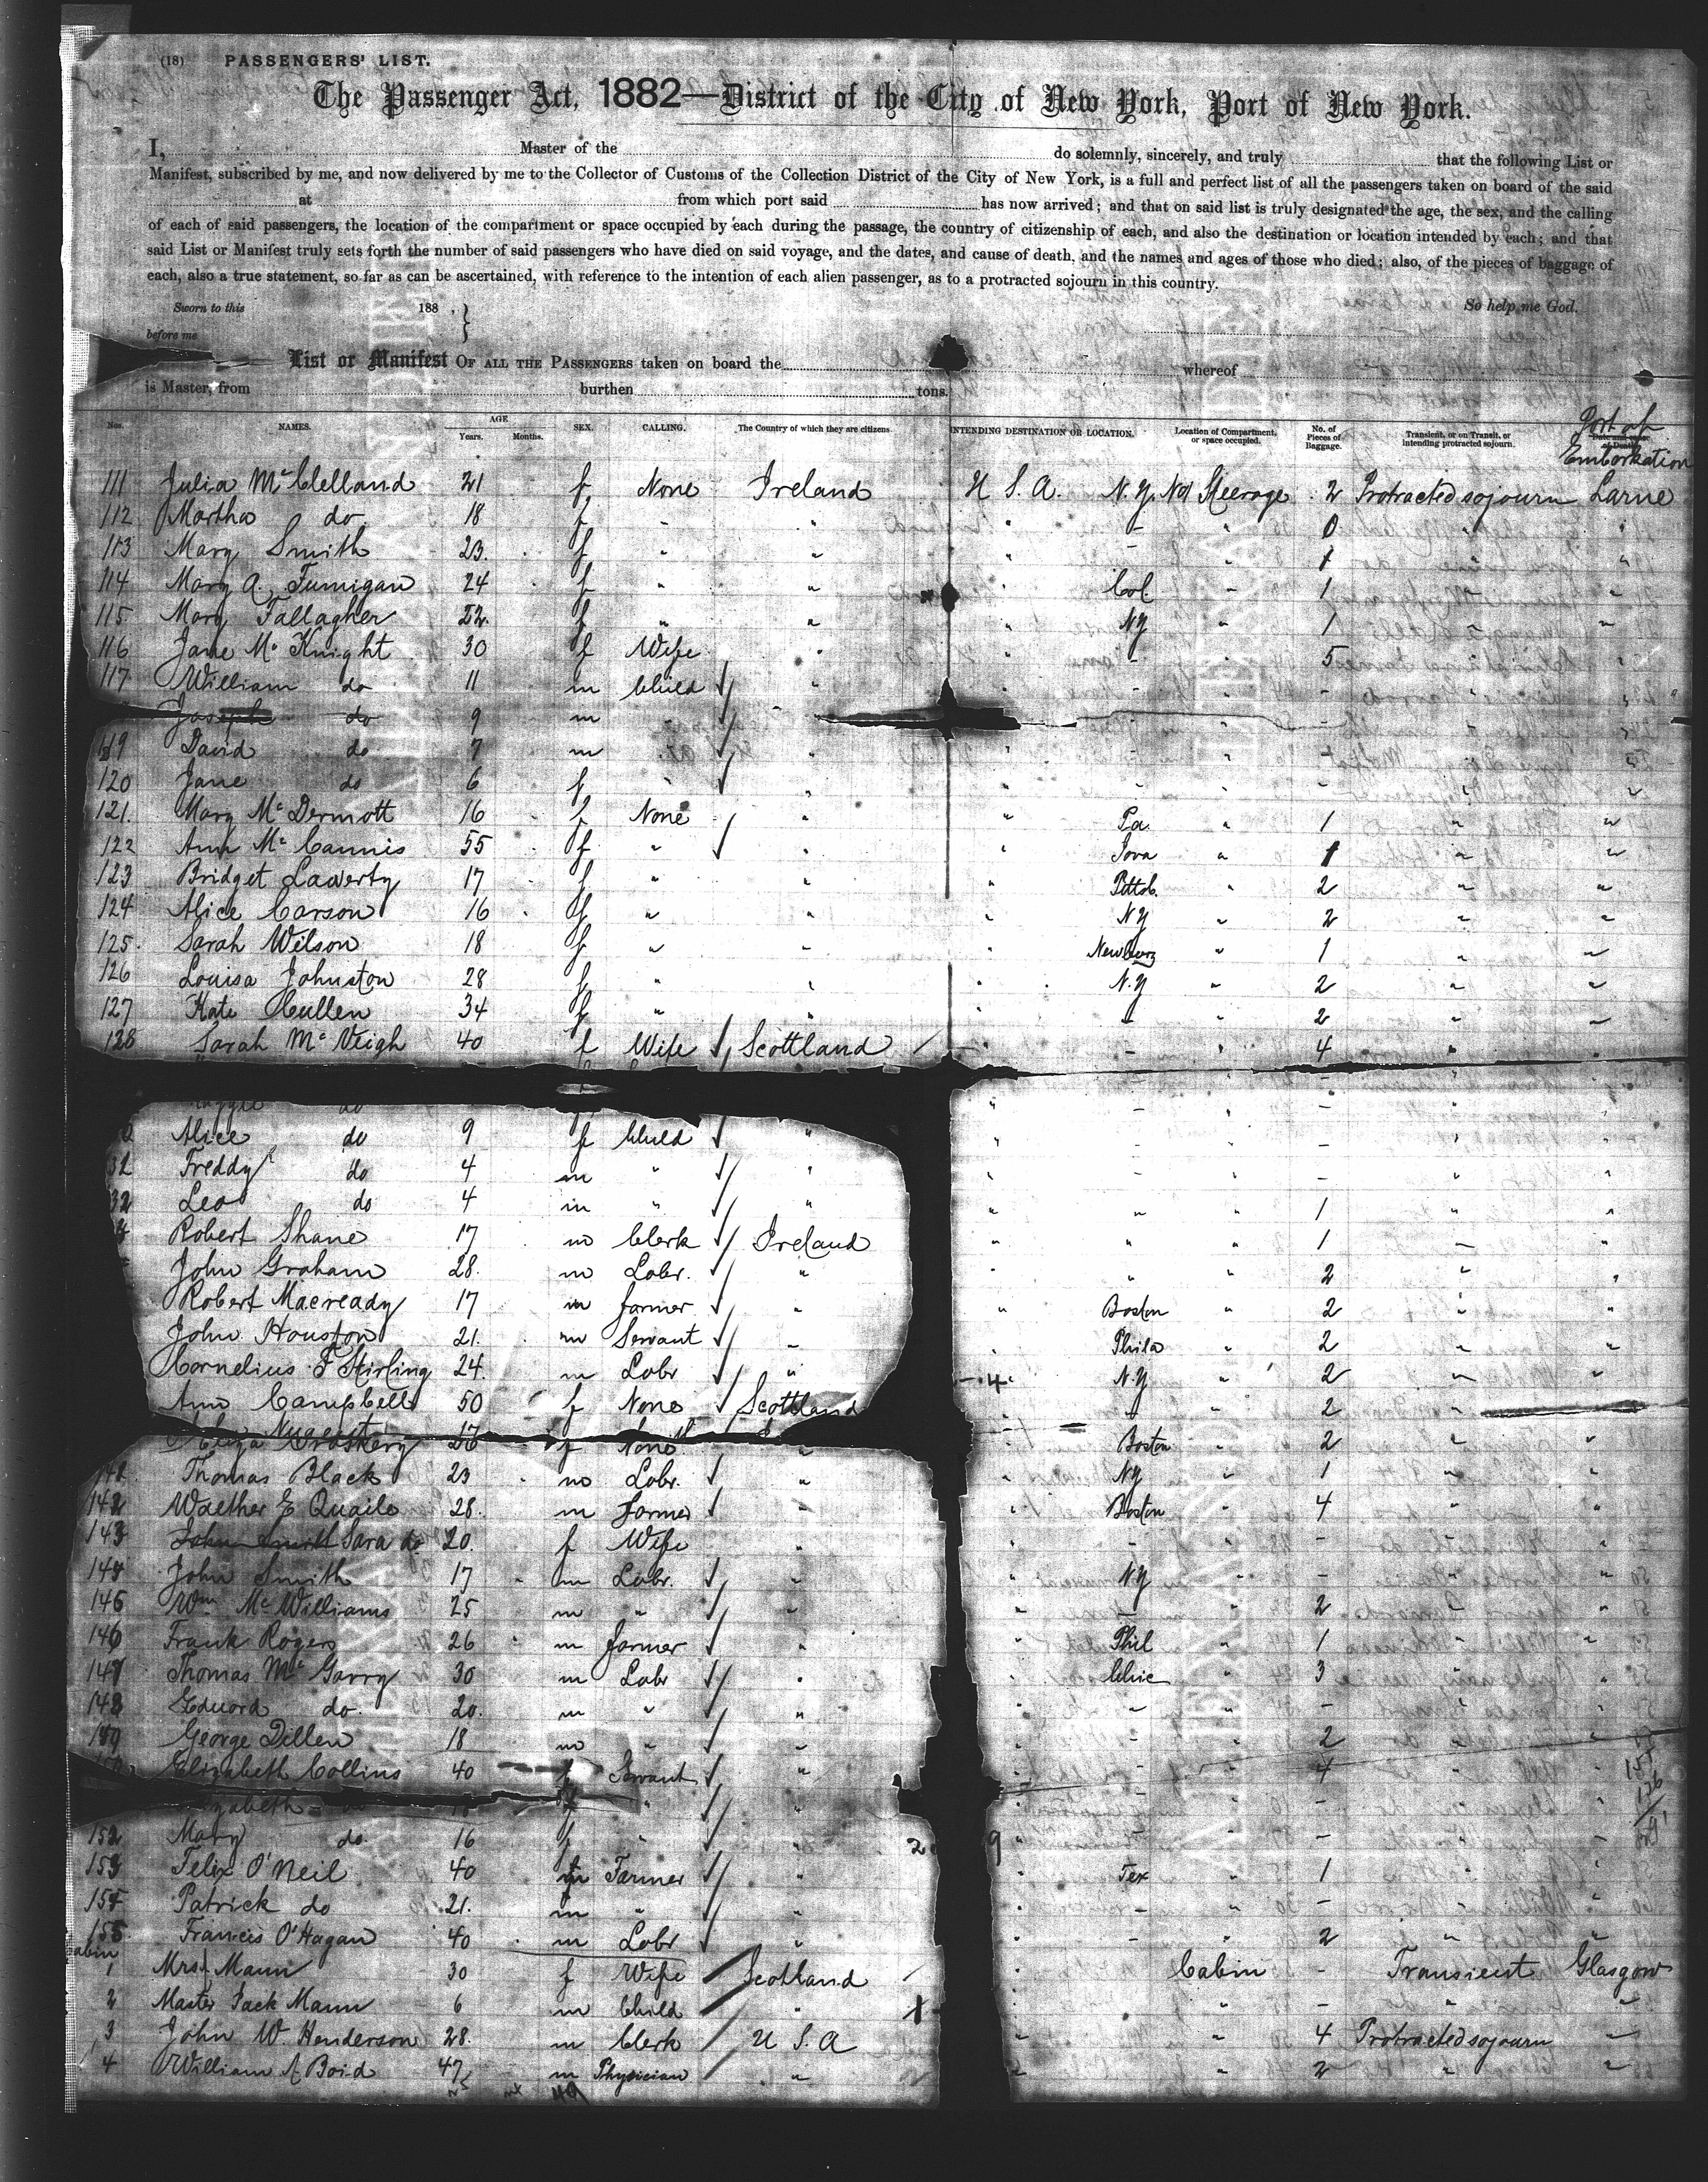 (18) PASSENGERS' LIST.
The Passenger Act, 1882—District of the City of New York, Port of New York.
I, Master of the do solemnly, sincerely, and truly that the following List or
Manifest, subscribed by me, and now delivered by me to the Collector of Customs of the Collection District of the City of New York, is a full and perfect list of all the passengers taken on board of the said
at from which port said has now arrived; and that on said list is truly designated the age, the sex, and the calling
of each of said passengers, the location of the compartment or space occupied by each during the passage, the country of citizenship of each, and also the destination or location intended by each; and that
said List or Manifest truly sets forth the number of said passengers who have died on said voyage, and the dates, and cause of death, and the names and ages of those who died; also, of the pieces of baggage of
each, also a true statement, so far as can be ascertained, with reference to the intention of each alien passenger, as to a protracted sojourn in this country.
Sworn to this 188 , } So help me God.
before me
List or Manifest OF ALL THE PASSENGERS taken on board the whereof
is Master, from burthen tons.
Nos. NAMES. AGE Years. Months. SEX. CALLING. The Country of which they are citizens. INTENDING DESTINATION OR LOCATION. Location of Compartment, or space occupied. No. of Pieces of Baggage. Transient, or on Transit, or intending protracted sojourn. Port of Embarkation
111 Julia McClelland 21 f None Ireland U S. A. N. Y. No1 Steerage 2 Protracted sojourn Larne
112 Martha do 18 f " " " - " 0 " "
113 Mary Smith 23 f " " " - " 1 " "
114 Mary A. Fumigan 24 f " " " Col " 1 " "
115 Mary Tallagher 22 f " " " NY " 1 " "
116 Jane McKnight 30 f Wife " " - " 5 " "
117 William do 11 m Child " " - " - " "
Joseph do 9 m " " " - " - " "
119 David do 7 m " " " - " - " "
120 Jane do 6 f " " " - " - " "
121 Mary McDermott 16 f None " " Pa " 1 " "
122 Ann McCannis 55 f " " " Iova " 1 " "
123 Bridget Laverty 17 f " " " Pittsb. " 2 " "
124 Alice Carson 16 f " " " NY " 2 " "
125 Sarah Wilson 18 f " " " Newburg " 1 " "
126 Louisa Johnston 28 f " " " N.Y " 2 " "
127 Kate Cullen 34 f " " " - " 2 " "
128 Sarah McVeigh 40 f Wife Scottland " - " 4 " "
do " - " - " "
Alice do 9 f Child " " - " - " "
Freddy do 4 m " " " - " - " "
32 Leo do 4 m " " " " " 1 " "
Robert Shane 17 m Clerk Ireland " " " 1 " "
John Graham 28 m Labr. " " " " 2 " "
Robert Macready 17 m farmer " " Boston " 2 " "
John Houston 21 m Servant " " Phila " 2 " "
Cornelius F Stirling 24 m Labr " " N.Y " 2 " "
Ann Campbell 50 f None Scottland " " " 2 "
Eliza 26 f None " " Boston " 2 " "
Thomas Black 23 m Labr. " " NY " 1 " "
142 Walther E Quaile 28 m Farmer " " Boston " 4 " "
143 Sara do 20 f Wife " " - " - " "
144 John Smith 17 m Labr. " " NY " - " "
145 Wm McWilliams 25 m " " " - " 2 " "
146 Frank Rogers 26 m farmer " " Phil " 1 " "
147 Thomas McGarry 30 m Labr " " Chic " 3 " "
148 Edward do 20 m " " " " " - " "
149 George Dillen 18 m " " " - " 2 " "
Elizabeth Collins 40 f Servant " " - " 4 " "
155
126
Elizabeth f " " " - " - " "
152 Mary do 16 f " " " - " - " "
153 Felix O'Neil 40 m Farmer " " Tex " 1 " "
154 Patrick do 21 m " " " - " - " "
155 Francis O'Hagan 40 m Labr " " - " 2 " "
Cabin
1 Mrs Mann 30 f Wife Scotland " Cabin - Transient Glasgow
2 Master Jack Mann 6 m Child " " " - " "
3 John W. Henderson 28 m Clerk U S. A " " 4 Protracted sojourn "
4 William A Boid 47 m Physician " " " 2 " "